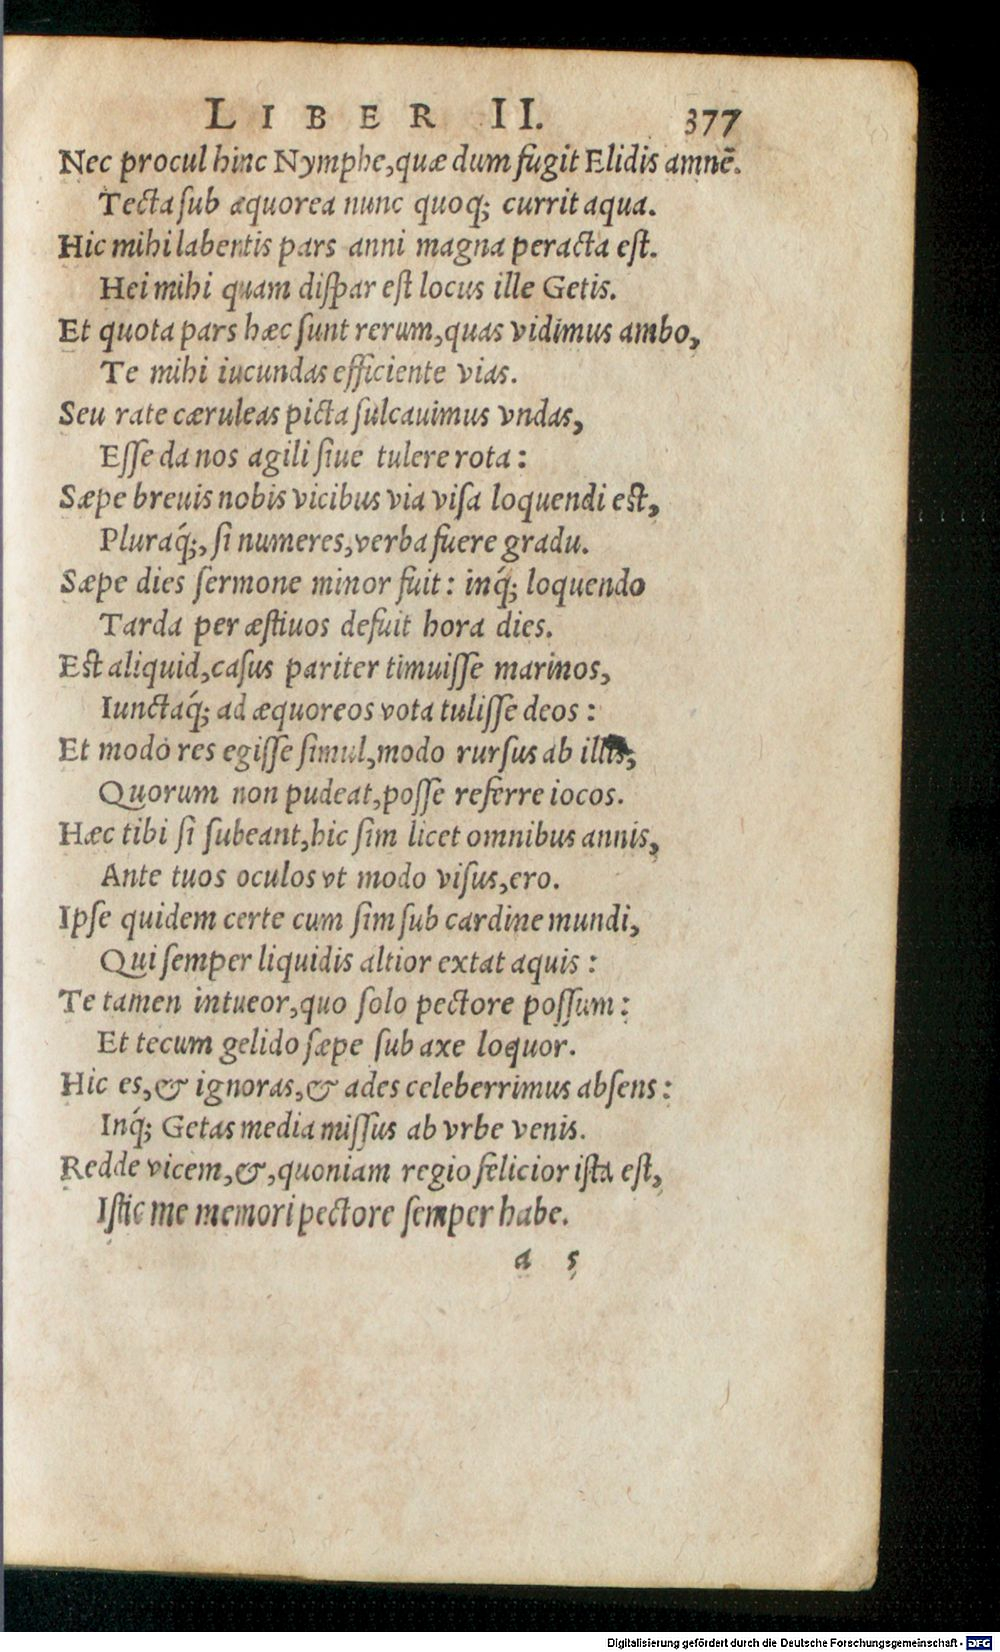 LIBER II. 377
Nec procul hinc Nymphe, quæ dum fugit Elidis amnē.
Tecta sub æquorea nunc quoq; currit aqua.
Hic mihi labentis pars anni magna peracta est.
Hei mihi quam dispar est locus ille Getis.
Et quota pars hæc sunt rerum, quas vidimus ambo,
Te mihi iucundas efficiente vias.
Seu rate cæruleas picta sulcauimus vndas,
Esse da nos agili siue tulere rota:
Sæpe breuis nobis vicibus via visa loquendi est,
Pluraq́;, si numeres, verba fuere gradu.
Sæpe dies sermone minor fuit: inq́; loquendo
Tarda per æstiuos defuit hora dies.
Est aliquid, casus pariter timuisse marinos,
Iunctaq́; ad æquoreos vota tulisse deos:
Et modo res egisse simul, modo rursus ab illis,
Quorum non pudeat, posse referre iocos.
Hæc tibi si subeant, hic sim licet omnibus annis,
Ante tuos oculos vt modo visus, ero.
Ipse quidem certe cum sim sub cardine mundi,
Qui semper liquidis altior extat aquis:
Te tamen intueor, quo solo pectore possum:
Et tecum gelido sæpe sub axe loquor.
Hic es, & ignoras, & ades celeberrimus absens:
Inq́; Getas media missus ab vrbe venis.
Redde vicem, &, quoniam regio felicior ista est,
Istic me memori pectore semper habe.
a 5
Digitalisierung gefördert durch die Deutsche Forschungsgemeinschaft - DFG